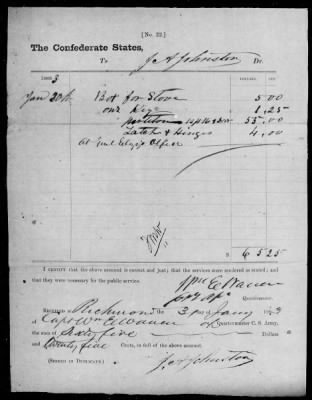 [No. 22.]
The Confederate States,
To J. A. Johnston Dr.
1863 DOLLARS. CTS.
Jany 20th Box for Stove 5.00
one Key 1.25
partition 55.00
Latch & Hinges 4.00
At Genl Office
65 25
I CERTIFY that the above account is correct and just; that the services were rendered as stated; and
that they were necessary for the public service.
Wm E Warren
Quartermaster.
RECEIVED Richmond the 3 of Jany 1863
Capt Wm E Warren Quartermaster C. S. Army,
the sum of Sixty five Dollars
and Twenty five Cents, in full of the above account.
(SIGNED IN DUPLICATE.) J. A. Johnston